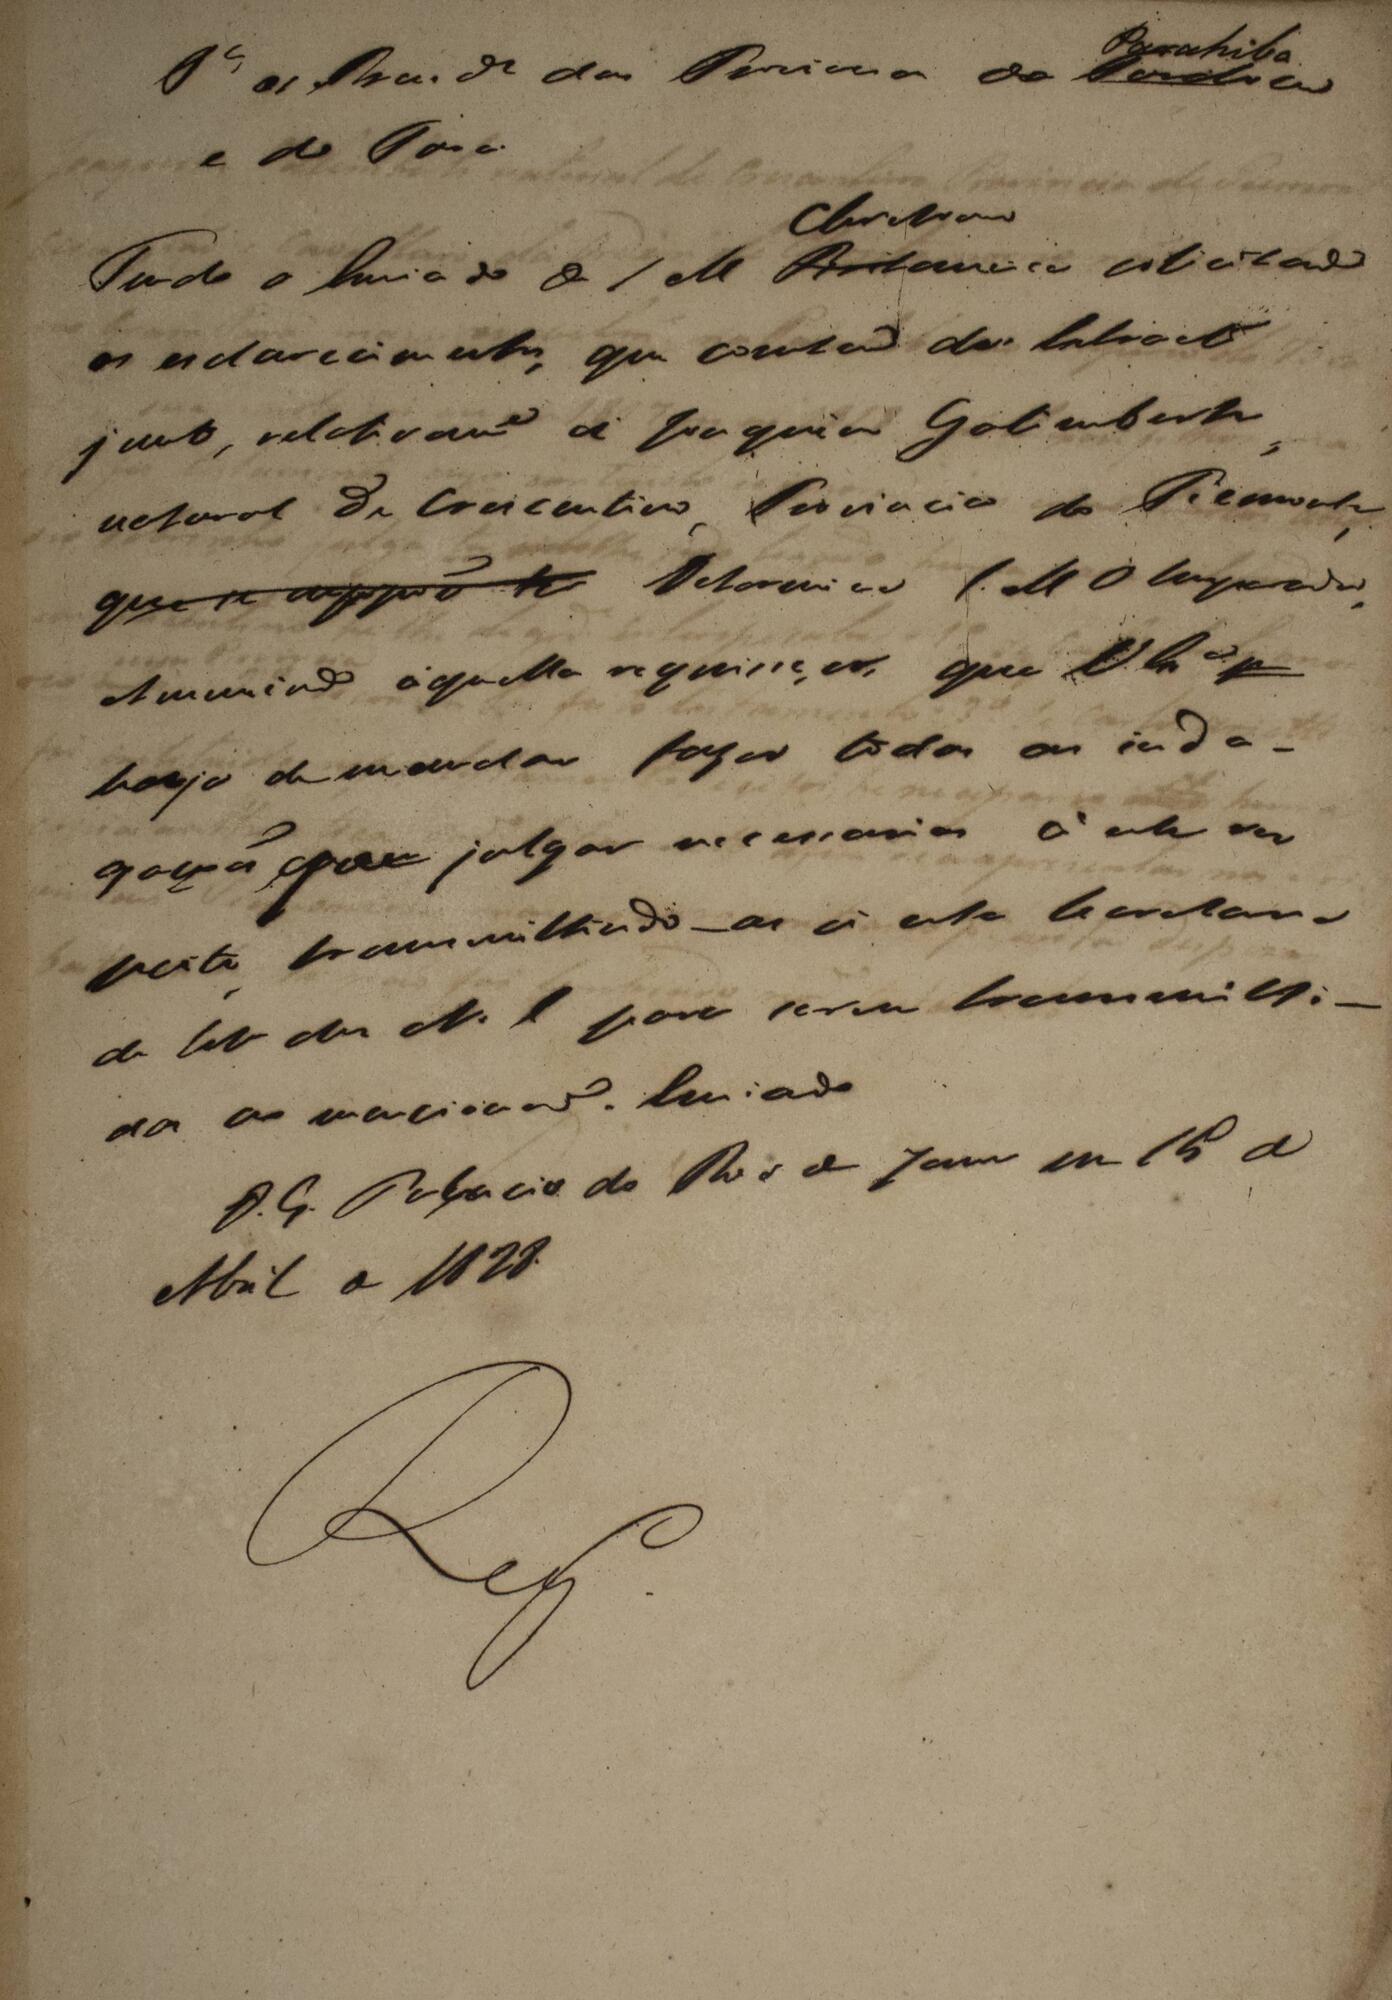 Pª os Presid.es das Provincias da Parahiba
e do Pará
Tendo o Enviado de S M Christian.
os esclarecimentos, que constaõ do Extracto
junto, relativam.e a Joaquim Galimberti,
natural de Crescentino, Provincia do Piemonte,
que se suppoẽ ter Determina S. M O Imperador,
Annuindo áquella requisiçaõ, que V. Ex.ª
haja de mandar fazer todas as inda-
gaçoẽs, que julgar necessarias á este res
peito, transmittindo-as á esta Secretaria
de Est. dos N. E para serem transmitti-
das ao mencionado. Enviado
D. G. Palacio do Rio de Janr em 15 de
Abril de 1828.
Reg.